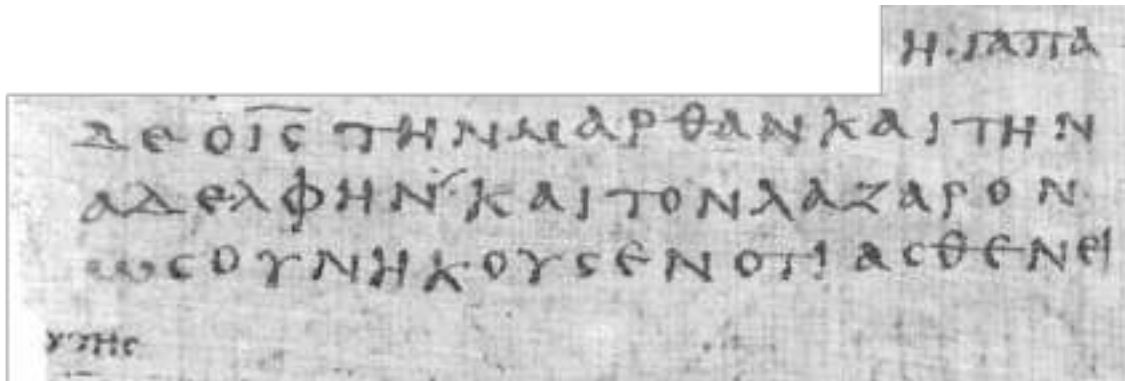 Η·ΓΑΠΑ
ΔΕΟΙ̅Ϲ̅ΤΗΝΜΑΡΘΑΝΚΑΙΤΗΝ
ΑΔΕΛΦΗΝ⸍ΚΑΙΤΟΝΛΑΖΑΡΟΝ·
ΩϹΟΥΝΗΚΟΥϹΕΝΟΤΙΑϹΘΕΝΕΙ
ΥΤΗϹ